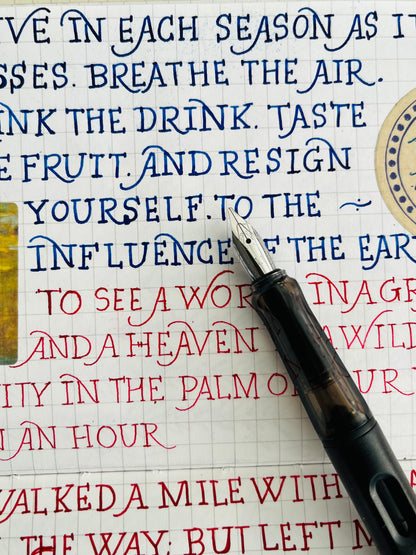 IVE IN EACH SEASON AS IT
SSES. BREATHE THE AIR.
INK THE DRINK. TASTE
E FRUIT. AND RESIGN
YOURSELF. TO THE ~
INFLUENCE OF THE EAR
TO SEE A WOR IN A GR
AND A HEAVEN A WILD
ITY IN THE PALM OF UR
N AN HOUR
WALKED A MILE WITH
THE WAY; BUT LEFT M